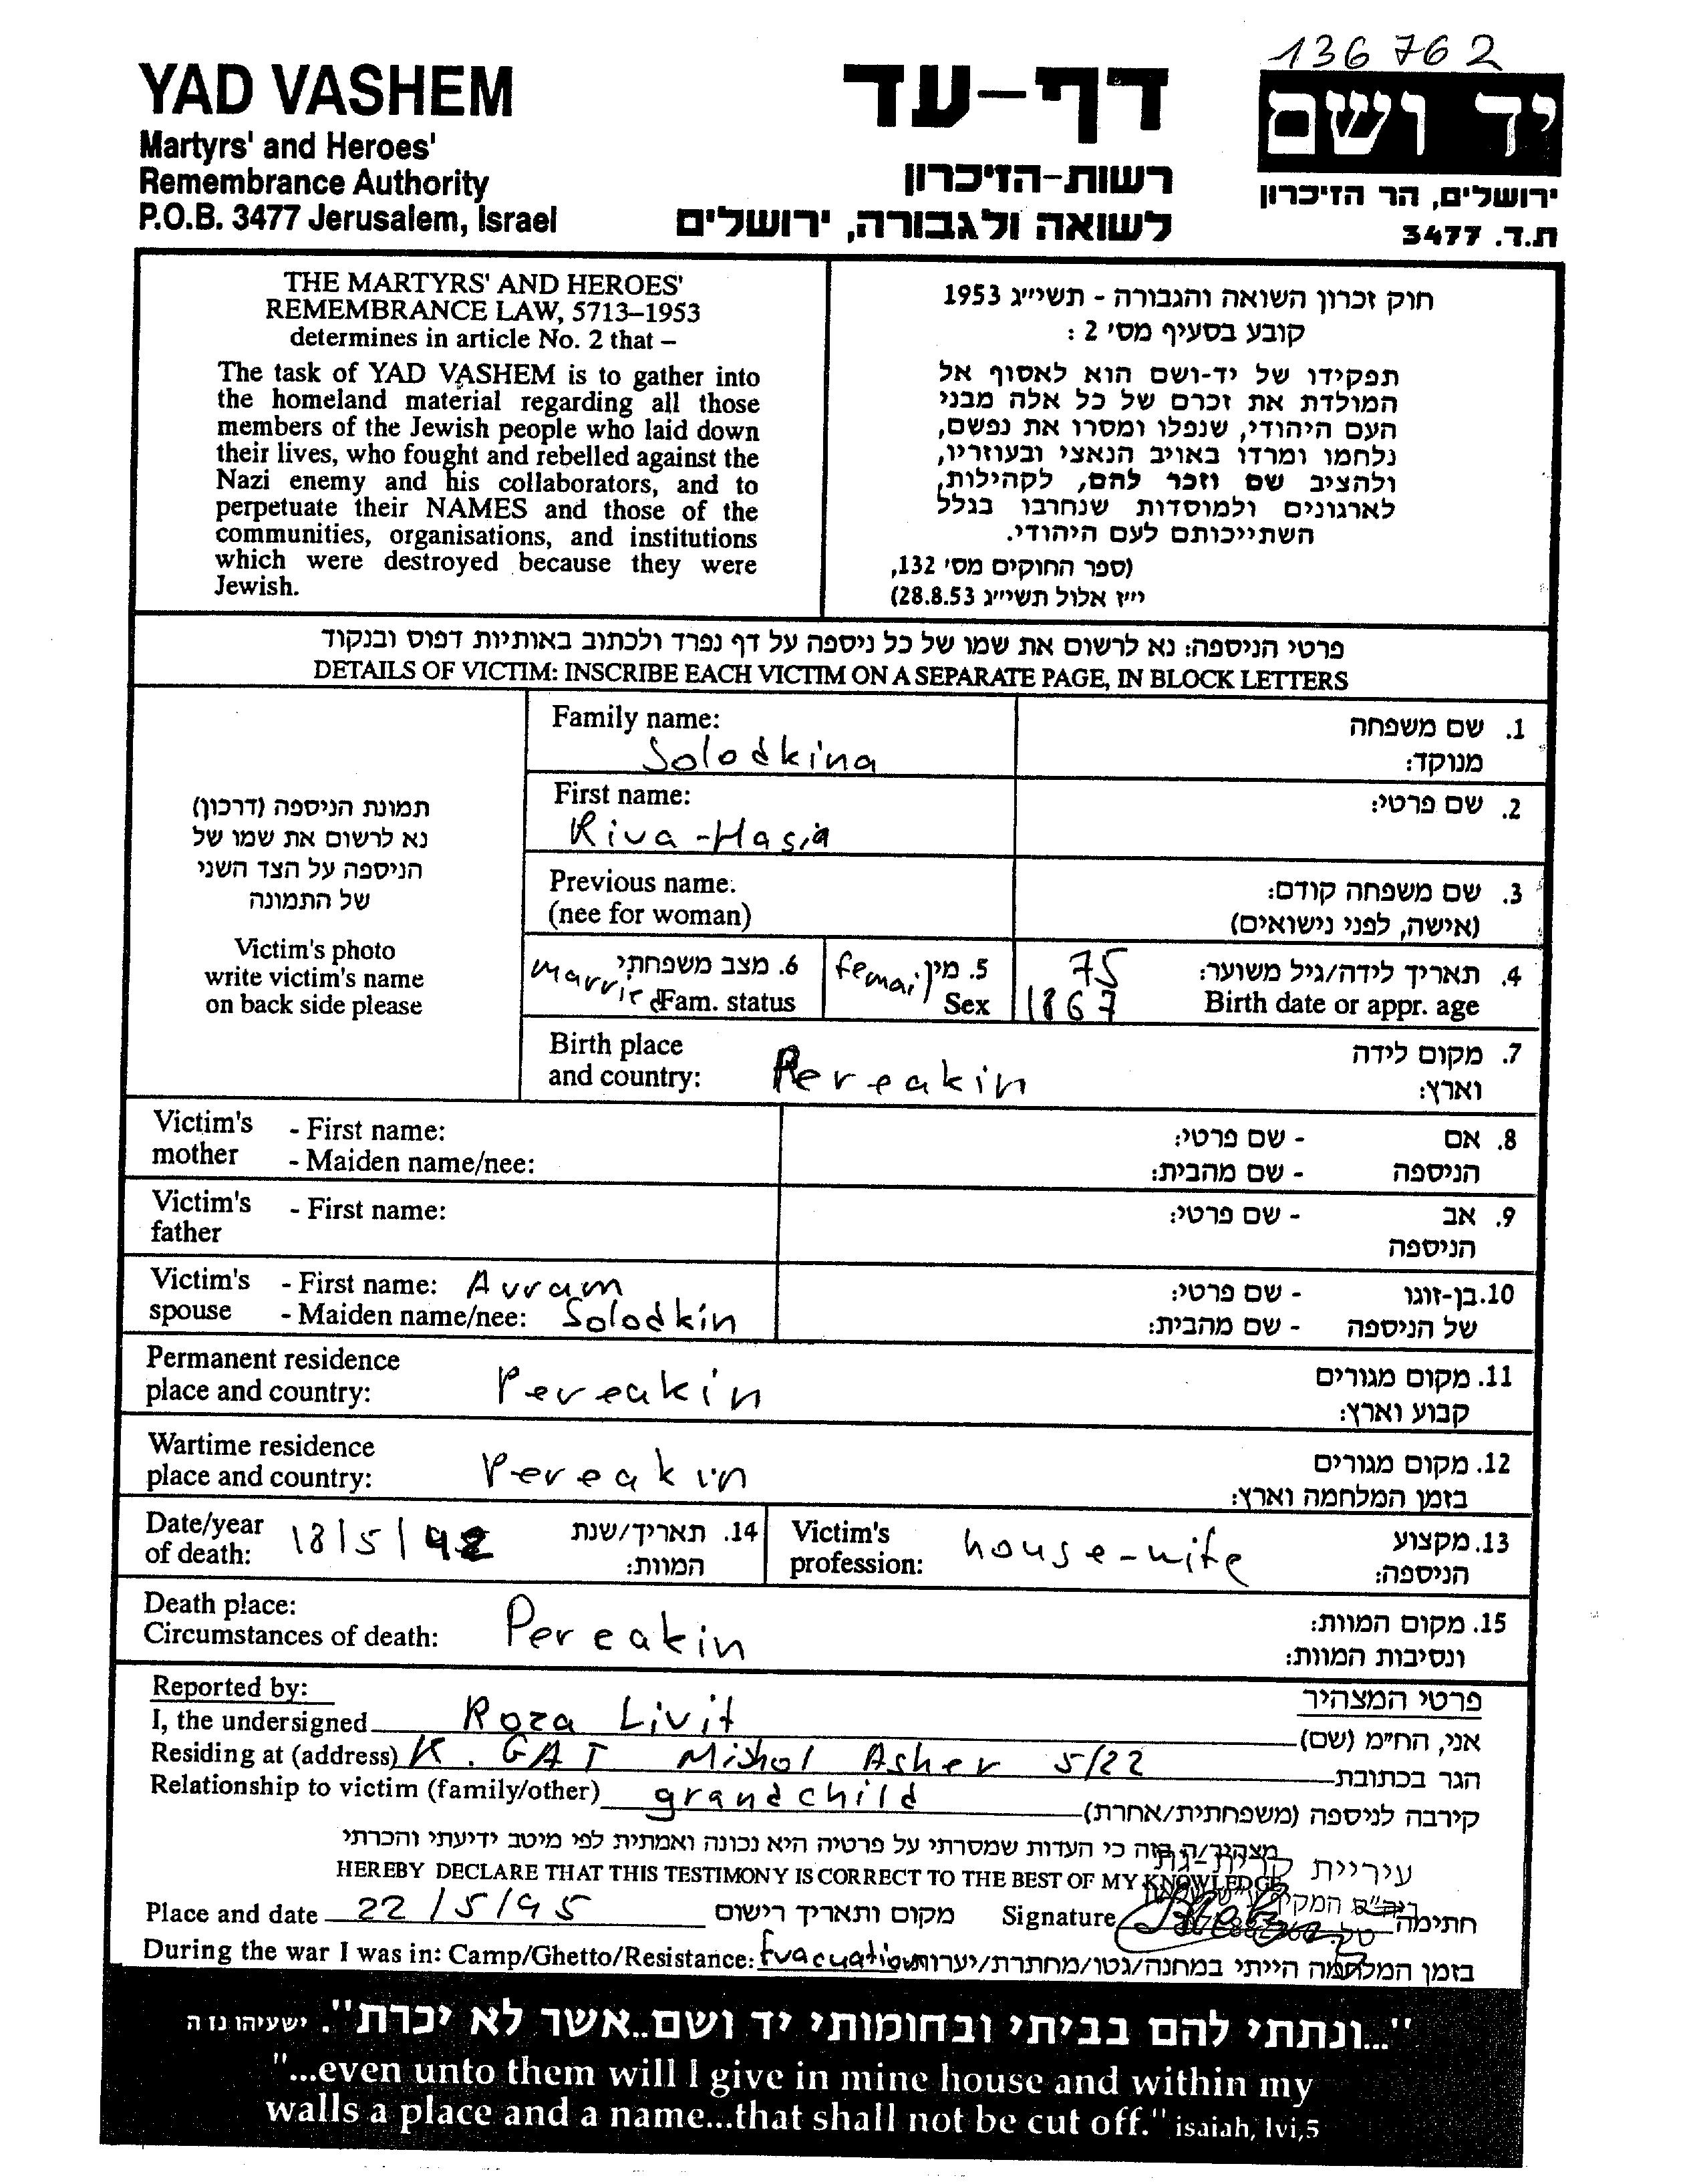 136762
YAD VASHEM
Martyrs' and Heroes'
Remembrance Authority
P.O.B. 3477 Jerusalem, Israel
דף-עד
רשות-הזיכרון
לשואה ולגבורה, ירושלים
יד ושם
ירושלים, הר הזיכרון
ת.ד. 3477
THE MARTYRS' AND HEROES'
REMEMBRANCE LAW, 5713–1953
determines in article No. 2 that –
The task of YAD VASHEM is to gather into
the homeland material regarding all those
members of the Jewish people who laid down
their lives, who fought and rebelled against the
Nazi enemy and his collaborators, and to
perpetuate their NAMES and those of the
communities, organisations, and institutions
which were destroyed because they were
Jewish.
חוק זכרון השואה והגבורה - תשי״ג 1953
קובע בסעיף מס׳ 2 :
תפקידו של יד-ושם הוא לאסוף אל
המולדת את זכרם של כל אלה מבני
העם היהודי, שנפלו ומסרו את נפשם,
נלחמו ומרדו באויב הנאצי ובעוזריו,
ולהציב שם וזכר להם, לקהילות,
לארגונים ולמוסדות שנחרבו בגלל
השתייכותם לעם היהודי.
(ספר החוקים מס׳ 132,
י״ז אלול תשי״ג 28.8.53)
פרטי הניספה: נא לרשום את שמו של כל ניספה על דף נפרד ולכתוב באותיות דפוס ובנקוד
DETAILS OF VICTIM: INSCRIBE EACH VICTIM ON A SEPARATE PAGE, IN BLOCK LETTERS
תמונת הניספה (דרכון)
נא לרשום את שמו של
הניספה על הצד השני
של התמונה
Victim's photo
write victim's name
on back side please
Family name:
Solodkina
1. שם משפחה
מנוקד:
First name:
Riva-Hasia
2. שם פרטי:
Previous name:
(nee for woman)
3. שם משפחה קודם:
(אישה, לפני נישואים)
6. מצב משפחתי
married Fam. status
5. מין femail
Sex
75
1867
4. תאריך לידה/גיל משוער:
Birth date or appr. age
Birth place
and country: Pereakin
7. מקום לידה
וארץ:
Victim's - First name:
mother - Maiden name/nee:
8. אם - שם פרטי:
הניספה - שם מהבית:
Victim's - First name:
father
9. אב - שם פרטי:
הניספה
Victim's - First name: Avram
spouse - Maiden name/nee: Solodkin
10. בן-זוגו - שם פרטי:
של הניספה - שם מהבית:
Permanent residence
place and country: Pereakin
11. מקום מגורים
קבוע וארץ:
Wartime residence
place and country: Pereakin
12. מקום מגורים
בזמן המלחמה וארץ:
Date/year
of death: 18/5/42
14. תאריך/שנת
המוות:
Victim's
profession: house-wife
13. מקצוע
הניספה:
Death place:
Circumstances of death: Pereakin
15. מקום המוות:
ונסיבות המוות:
Reported by:
פרטי המצהיר
I, the undersigned Roza Livit אני, הח״מ (שם)
Residing at (address) K. GAT Mishol Asher 5/22 הגר בכתובת
Relationship to victim (family/other) grandchild קירבה לניספה (משפחתית/אחרת)
מצהיר/ה בזה כי העדות שמסרתי על פרטיה היא נכונה ואמתית לפי מיטב ידיעתי והכרתי
HEREBY DECLARE THAT THIS TESTIMONY IS CORRECT TO THE BEST OF MY KNOWLEDGE
עיריית קרית-גת
Place and date 22/5/95 מקום ותאריך רישום Signature חתימה
During the war I was in: Camp/Ghetto/Resistance: Evacuation בזמן המלחמה הייתי במחנה/גטו/מחתרת/יערות
"...ונתתי להם בביתי ובחומותי יד ושם..אשר לא יכרת". ישעיהו נו ה
"...even unto them will I give in mine house and within my
walls a place and a name...that shall not be cut off." isaiah, lvi,5